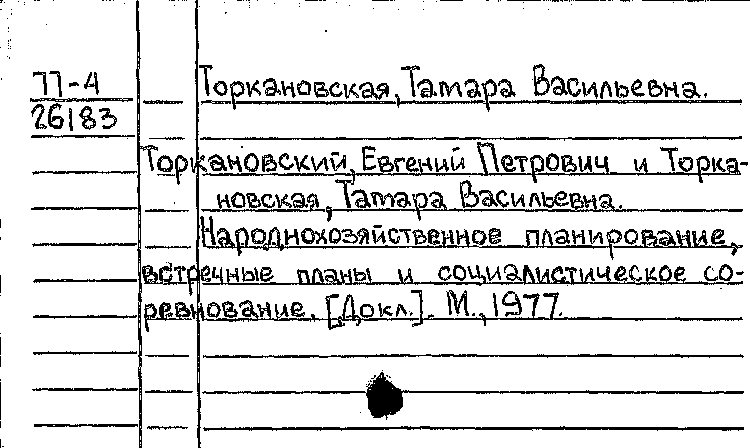 77-4 Торкановская, Тамара Васильевна.
26183
Торкановский, Евгений Петрович и Торка-
новская, Тамара Васильевна.
Народнохозяйственное планирование,
встречные планы и социалистическое со-
ревнование. [Докл.]. М., 1977.